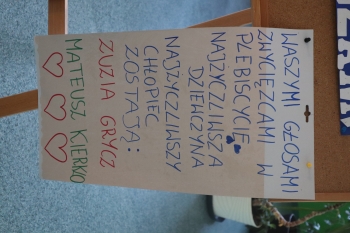 WASZYMI GŁOSAMI
ZWYCIĘZCAMI W
PLEBISCYCIE
NAJŻYCZLIWSZA
DZIEWCZYNA
NAJŻYCZLIWSZY
CHŁOPIEC
ZOSTAJĄ:
ZUZIA GRYCZ
MATEUSZ KIERKO